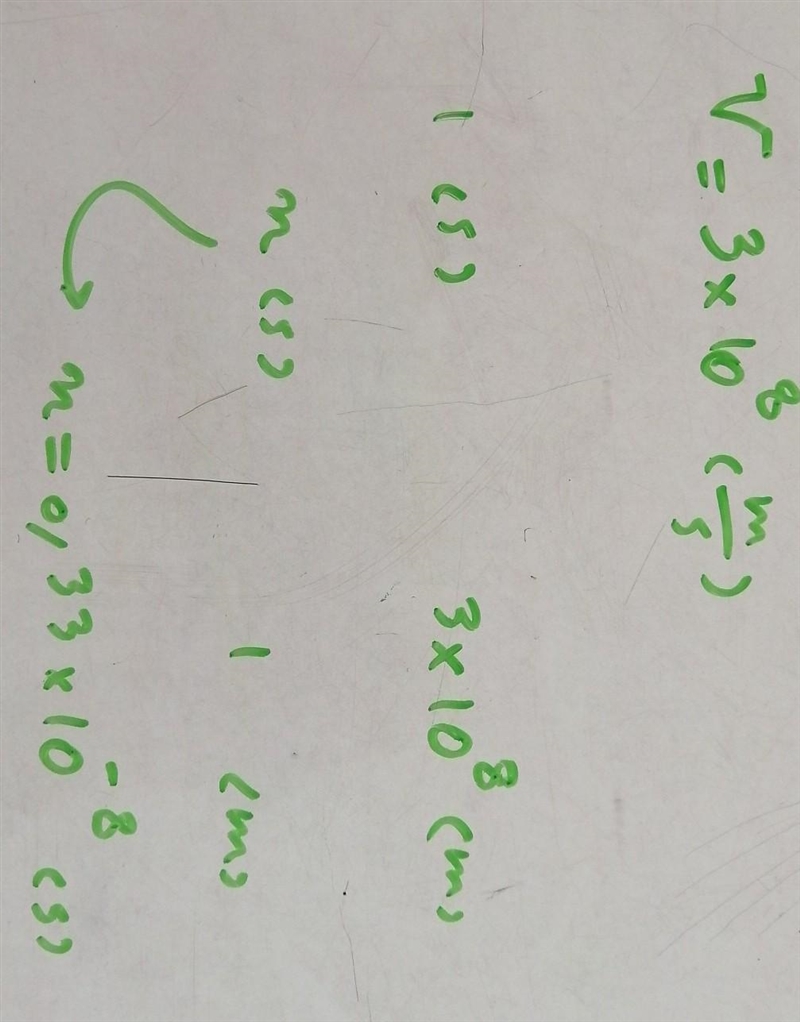 V = 3 × 10⁸ (m/s)
1 (s) 3 × 10⁸ (m)
n (s) 1 (m)
n = 0/33 × 10⁻⁸ (s)